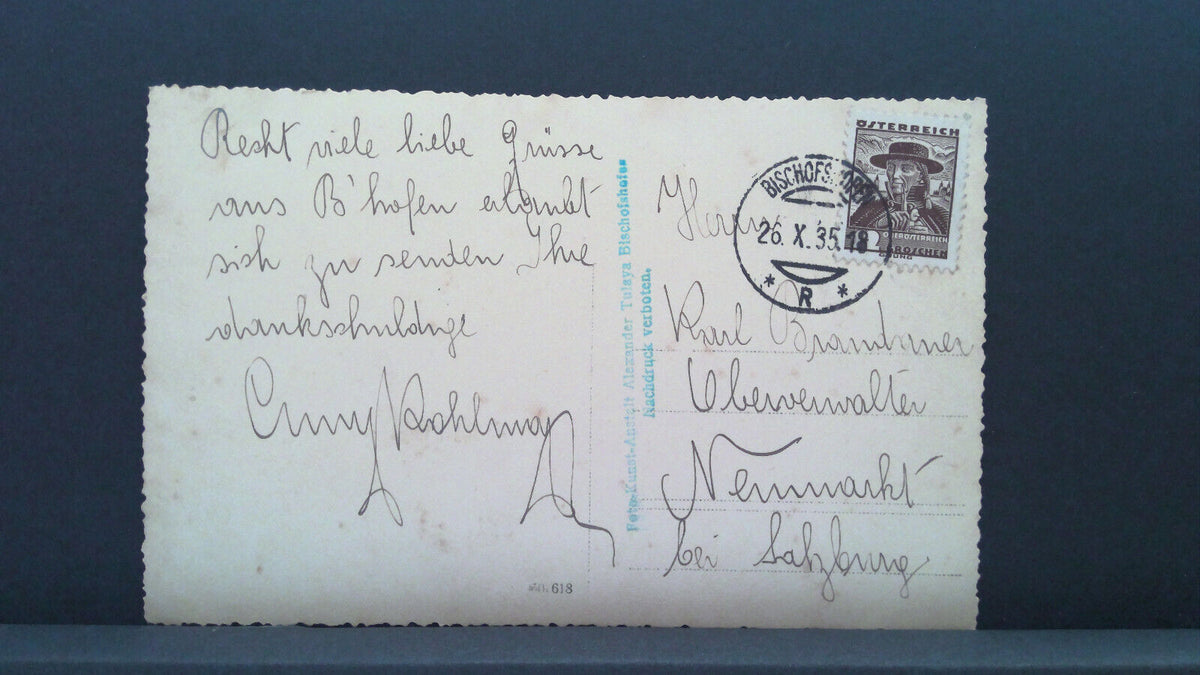 Recht viele liebe Grüsse
aus B'hofen erlaubt
sich zu senden Ihre
dankschuldige
Kohlmay
No. 618
Foto-Kunst-Anstalt Alexander Tulaya Bischofshofen
Nachdruck verboten.
ÖSTERREICH
GROSCHEN
BISCHOFSHOFEN
26. X. 35. 18
* R *
Herrn
Karl Brandtner
Oberverwalter
Neumarkt
bei Salzburg